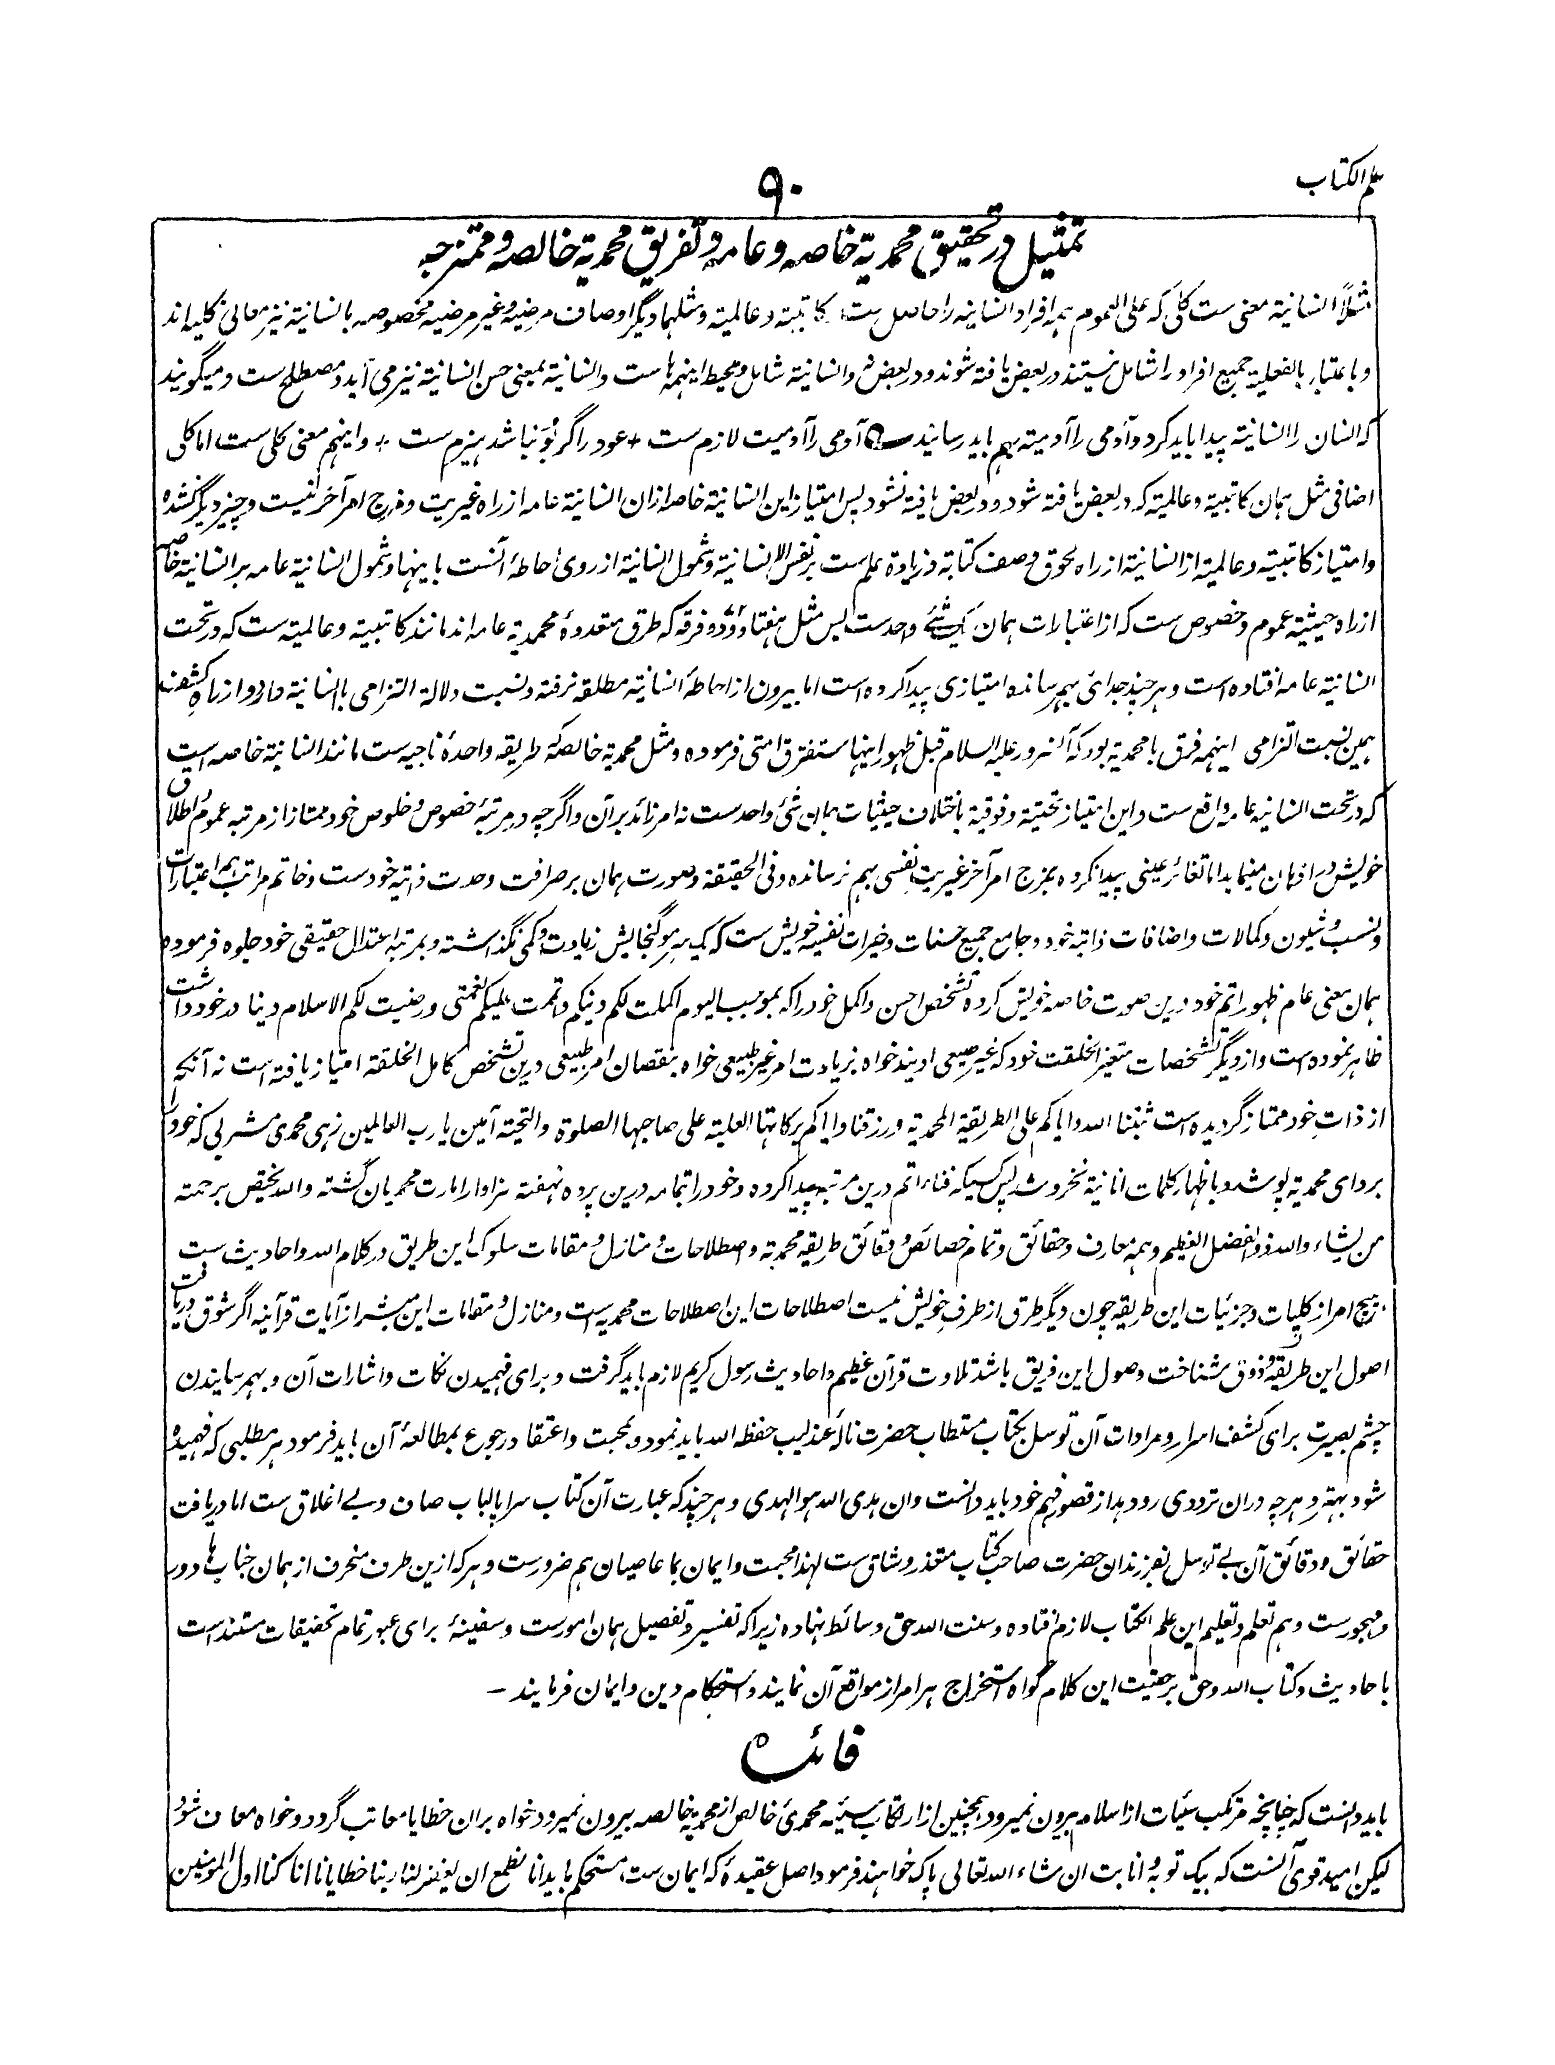 علم الکتاب
۹۰
تمثیل در تحقیق محمدیة خاصه و عامه و تفریق محمدیة خالصه و ممتزجه
مثلاً انسانیة معنی ست کلی که علی العموم همه افراد انسانیه را حاصل ست کاتبیة و عالمیة و مثلهما دیگر اوصاف مرضیه و غیر مرضیه مخصوصه بانسانیة نیز معانی کلیه اند
و باعتبار بالفعلیة جمیع افراد را شامل نیستند در بعض یافته شوند و در بعض نه و انسانیة شامل و محیط اینهمه هاست و انسانیة بمعنی حسن انسانیة نیز می آید و مصطلح ست و میگویند
که انسان را انسانیة پیدا باید کرد و آدمی را آدمیة بهم باید رسانید آدمی را آدمیت لازم ست + عود را گر بو نباشد هیزم ست + و اینهم معنی کلی ست اما کلی
اضافی مثل همان کاتبیة و عالمیة که در بعض یافته شود و در بعض یافته نشود پس امتیاز این انسانیة خاصه ازان انسانیة عامه از راه غیریت و مزج امر آخر نیست و چیز دیگر نشده
و امتیاز کاتبیة و عالمیة از انسانیة از راه لحوق وصف کتابة و زیادة علم ست بر نفس الانسانیة و شمول انسانیة از روی احاطهٔ آنست باینها و شمول انسانیة عامه بر انسانیة خاصه
از راه حیثیة عموم و خصوص ست که از اعتبارات همان شئے واحدست پس مثل هفتاد و دو فرقه که طرق متعددهٔ محمدیة عامه اند مانند کاتبیة و عالمیة ست که در تحت
انسانیة عامه افتاده است و هر چند جدائی بهم رسانده امتیازی پیدا کرده است اما بیرون از احاطهٔ انسانیة مطلقه نرفته و نسبت دلالة التزامی با انسانیة دارد و از راه کشف
همین نسبت التزامی اینهمه فرق با محمدیة بود که آنسرور علیه السلام قبل ظهور اینها ستفترق امتی فرموده و مثل محمدیة خالصه که طریقه واحدهٔ ناجیه ست مانند انسانیة خاصه است
که در تحت انسانیه عامه واقع ست و این امتیاز تحتیة و فوقیة باختلاف حیثیات همان شئ واحدست نه امر زائد بر آن و اگرچه در مرتبهٔ خصوص و خلوص خود ممتاز از مرتبه عموم و اطلاق
خویش در اذهان مینماید اما تغائر عینی پیدا نکرده بمزج امر آخر غیریت نفسی بهم نرسانده و فی الحقیقة و صورت همان بر صرافت وحدت ذاتیه خودست و خاتم مراتب همه اعتبارات
و نسب و شیون و کمالات و اضافات ذاتیه خود و جامع جمیع حسنات و خیرات نفسیه خویش ست که یک سر مو گنجایش زیادت و کمی نگذاشته و بمرتبه اعتدال حقیقی خود جلوه فرموده
همان معنی عام ظهور اتم خود درین صورت خاصه خویش کرده تشخص احسن و اکمل خود را که بموجب الیوم اکملت لکم دینکم و اتممت علیکم نعمتی و رضیت لکم الاسلام دینا در خود داشت
ظاهر نموده است و از دیگر تشخصات متغیر الخلقت خود که غیر طبیعی اویند خواه بزیادت امر غیر طبیعی خواه بنقصان امر طبیعی درین تشخص کامل الخلقة امتیاز یافته است نه آنکه
از ذات خود ممتاز گردیده است ثبتنا الله و ایاکم علی الطریقة المحمدیة و رزقنا و ایاکم برکاتها العلیة علی صاحبها الصلوة والتحیة آمین یا رب العالمین زهی محمدی مشربی که خود را
بردای محمدیة پوشد و باظهار کلمات انانیة نخروشد پس کسیکه فناء اتم درین مرتبه پیدا کرده و خود را بتمامه درین پرده نهفته سزاوار امارت محمدیان گشته والله یختص برحمته
من یشاء والله ذو الفضل العظیم و همه معارف و حقائق و تمام خصائص و دقائق طریقه محمدیة و اصطلاحات و منازل و مقامات سلوک این طریق در کلام الله و احادیث ست
هیچ امر از کلیات و جزئیات این طریقه چون دیگر طرق از طرف خویش نیست اصطلاحات این اصطلاحات محمدیه است و منازل و مقامات این مبشر از آیات قرآنیه اگر شوق دریافت
اصول این طریقه و ذوق شناخت وصول این فریق باشد تلاوت قرآن عظیم و احادیث رسول کریم لازم باید گرفت و برای فهمیدن نکات و اشارات آن و بهم رسایندن
چشم بصیرت برای کشف اسرار و مرادات آن توسل بکتاب مستطاب حضرت نالهٔ عندلیب حفظه الله باید نمود و بمحبت و اعتقاد رجوع بمطالعهٔ آن باید فرمود هر مطلبی که فهمیده
شود بهتر و هر چه دران تردد روی دهد از قصور فهم خود باید دانست وان هدی الله هو الهدی و هر چند که عبارت آن کتاب سراپا لباب صاف و بے اغلاق ست اما دریافت
حقائق و دقائق آن بے توسل بفرزندان حضرت صاحب کتاب متعذر و شاق ست لهذا محبت و ایمان بما عاصیان هم ضرورست و هر که ازین طرف منحرف از همان جناب ها دور
و مهجورست و هم تعلم و تعلیم این علم الکتاب لازم افتاده و سنت الله حق وسائط نهاده زیرا که تفسیر و تفصیل همان امورست و سفینهٔ برای عبور تمام تحقیقات مستندست
باحادیث و کتاب الله و حق بر حقیت این کلام گواه استخراج هر امر از مواقع آن نمایند و استحکام دین و ایمان فرمایند –
فائده
باید دانست که چنانچه مرتکب سیئات از اسلام بیرون نمیرود همچنین از ارتکاب سیئه محمدی خالص از محمدیه خالصه بیرون نمیرود خواه بران خطایا معاتب گردد و خواه معاف شود
لیکن امید قوی آنست که بیک توبه و انابت ان شاء الله تعالی پاک خواهند فرمود اصل عقیدهٔ که ایمان ست مستحکم باید انا نطمع ان یغفر لنا ربنا خطایانا ان کنا اول المومنین